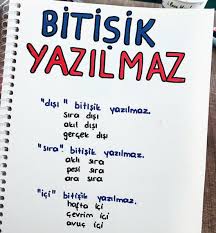 BİTİŞİK
YAZILMAZ
"dışı" bitişik yazılmaz.
sıra dışı
akıl dışı
gerçek dışı
"sıra" bitişik yazılmaz.
aklı sıra
peşi sıra
ara sıra
"içi" bitişik yazılmaz.
hafta içi
çevrim içi
avuç içi